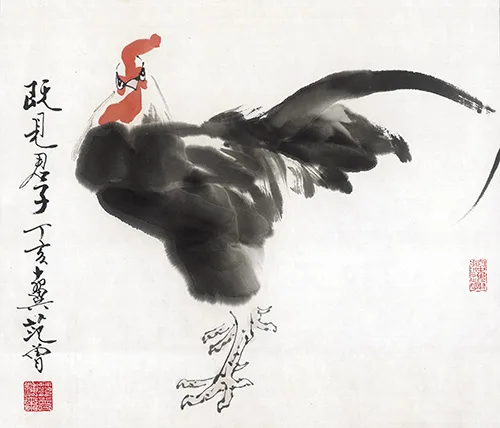 既見君子丁亥十翼范曾